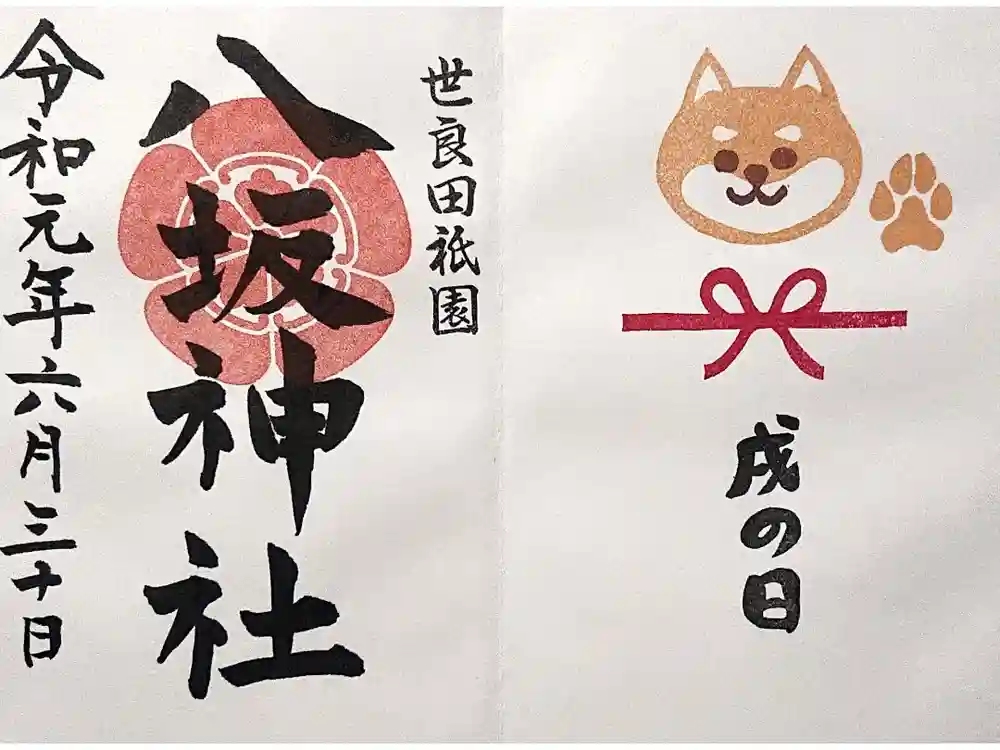 戌の日
世良田祇園
八坂神社
令和元年六月三十日